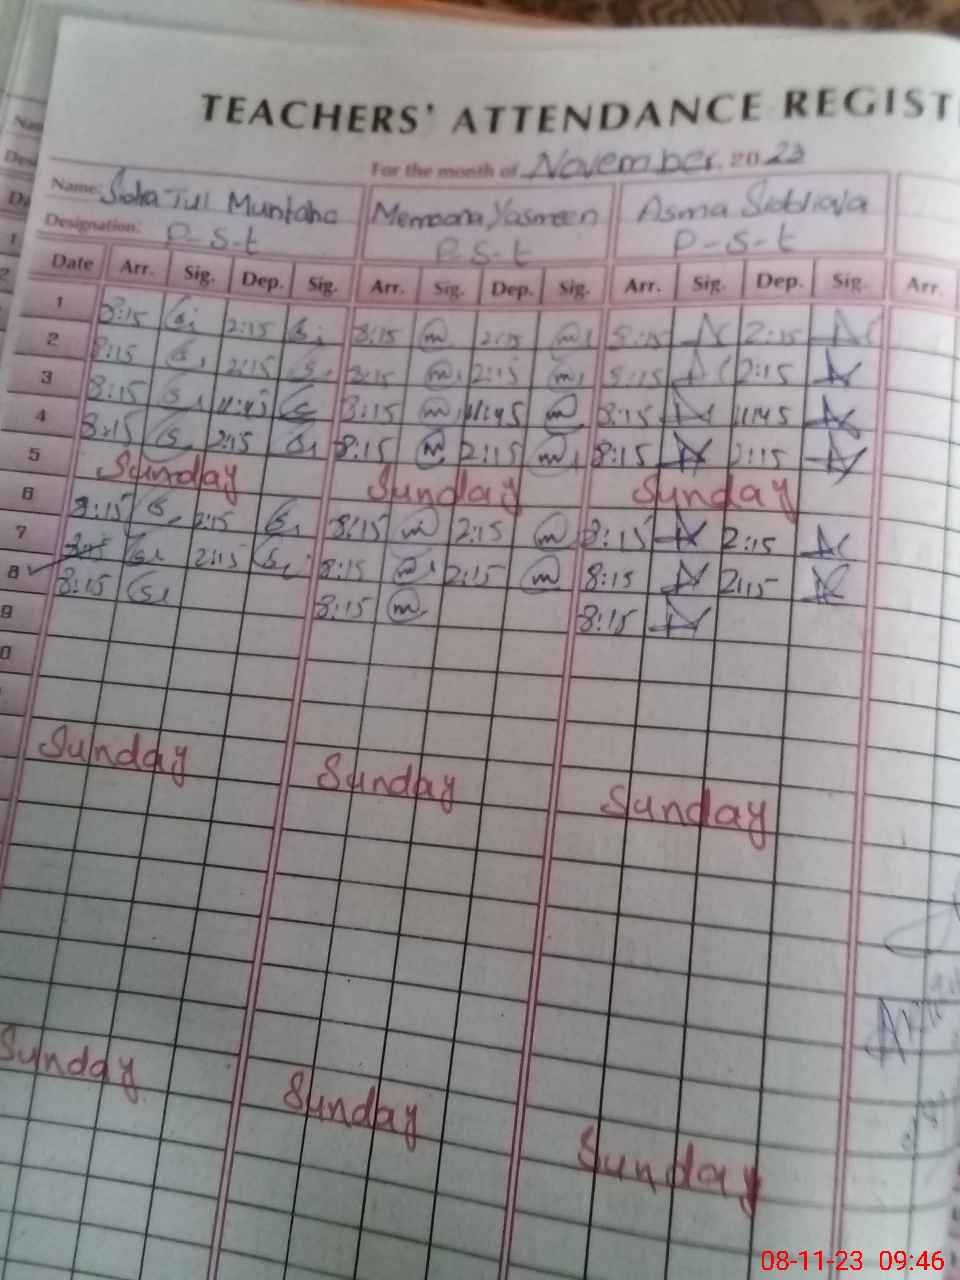 TEACHERS' ATTENDANCE REGIST
For the month of November. 20 23
Name: Tul Muntaha Memoona Yasmeen Asma
Designation: P-S-t P-S-t P-S-t
Date Arr. Sig. Dep. Sig. Arr. Sig. Dep. Sig. Arr. Sig. Dep. Sig. Arr.
1 8:15 2:15 8:15 m 2:15 m 8:15 2:15
2 8:15 2:15 8:15 m 2:15 m 8:15 2:15
3 8:15 11:45 8:15 m 11:45 m 8:15 11:45
4 8:15 2:15 8:15 m 2:15 m 8:15 2:15
5 Sunday Sunday Sunday
6 8:15 2:15 8:15 m 2:15 m 8:15 2:15
7 2:15 8:15 m 2:15 m 8:15 2:15
8 8:15 8:15 m 8:15
9
0
Sunday Sunday Sunday
Sunday Sunday Sunday
08-11-23 09:46